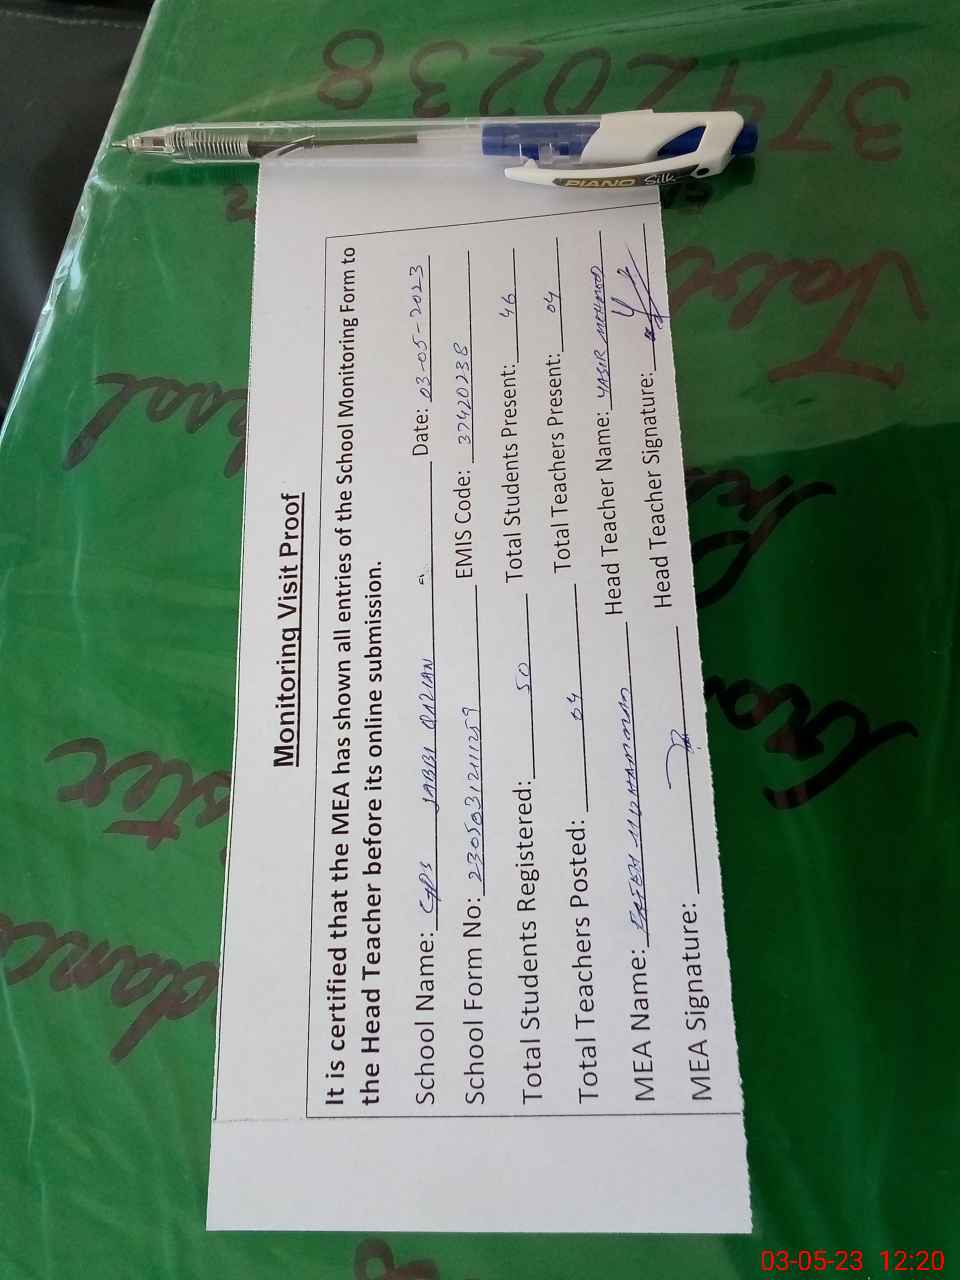 Monitoring Visit Proof
It is certified that the MEA has shown all entries of the School Monitoring Form to
the Head Teacher before its online submission.
School Name: GPS JABBI QAZIAN Date: 03-05-2023
School Form No: EMIS Code: 37420238
Total Students Registered: 50 Total Students Present: 46
Total Teachers Posted: 04 Total Teachers Present: 04
MEA Name: MUHAMMAD Head Teacher Name: YASIR MEHMOOD
MEA Signature: Head Teacher Signature:
PIANO Silk
37420238
03-05-23 12:20